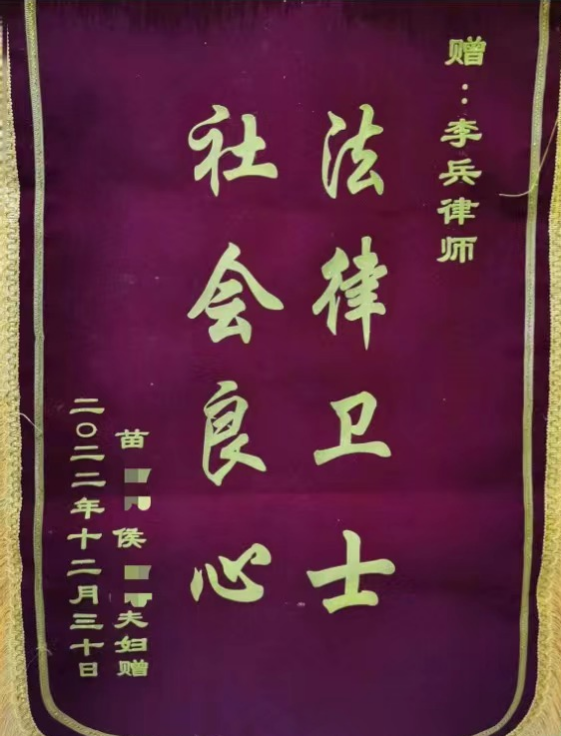 赠:李兵律师
法律卫士
社会良心
苗侯夫妇赠
二〇二二年十二月三十日